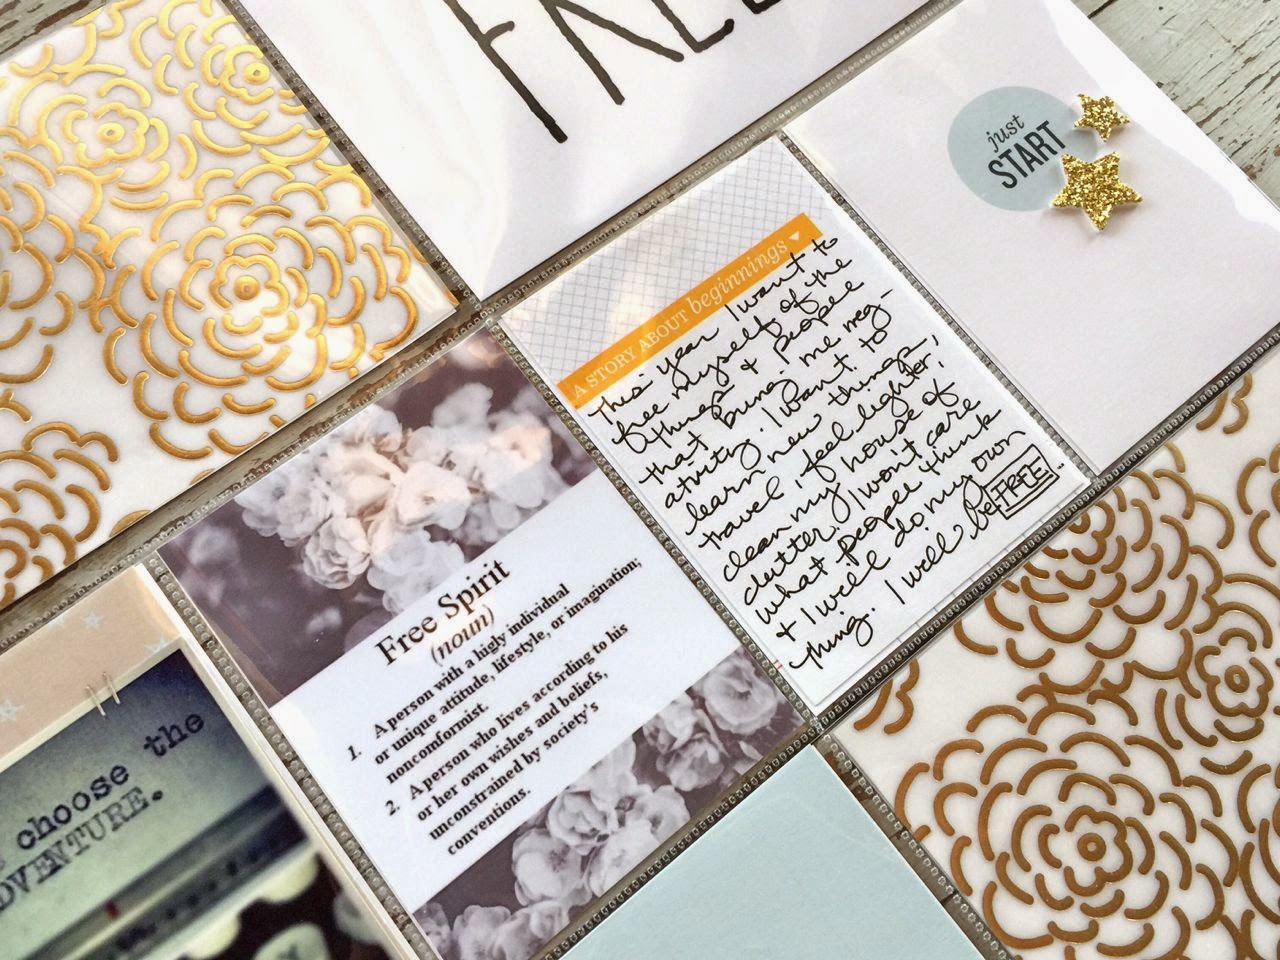 FREE
just
START
A STORY ABOUT beginnings
This year I want to
free myself of the
things & people
that bring me neg-
ativity. I want to
learn new things,
travel, feel lighter,
clean my house of
clutter. I won't care
what people think
& I will do my own
thing. I will be FREE..
Free Spirit
(noun)
1. A person with a higly individual
or unique attitude, lifestyle, or imagination;
nonconformist.
2. A person who lives according to his
or her own wishes and beliefs,
unconstrained by society's
conventions.
choose the
ADVENTURE.